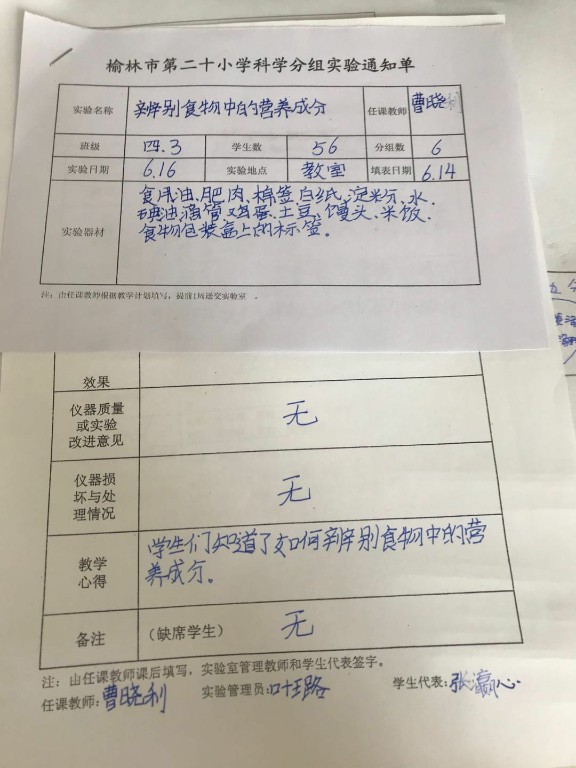 榆林市第二十小学科学分组实验通知单
实验名称 辨别食物中的营养成分 任课教师 曹晓利
班级 四.3 学生数 56 分组数 6
实验日期 6.16 实验地点 教室 填表日期 6.14
实验器材 食用油、肥肉、棉签、白纸、淀粉、水、
碘油、滴管、鸡蛋、土豆、馒头、米饭、
食物包装盒上的标签。
注：由任课教师根据教学计划填写，提前1周递交实验室 。
效果
仪器质量
或实验
改进意见 无
仪器损
坏与处
理情况 无
教学
心得 学生们知道了如何辨别食物中的营
养成分。
备注 (缺席学生) 无
注：由任课教师课后填写，实验室管理教师和学生代表签字。
任课教师:曹晓利 实验管理员:叶路 学生代表:张瀛心